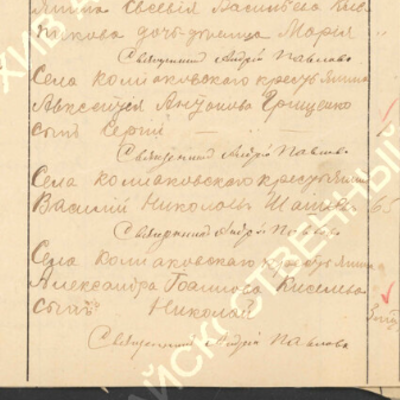 янина Евсевія Васильева Кия
никова дочь девица Марія
Священникъ Андрій Павловъ
Села Колпаковскаго крестьянина
Алексія Антонова Грищенко
сынъ Сергій
Священникъ Андрій Павловъ
Села Колпаковскаго крестьянинъ
Василій Николаевъ 65
Священникъ Андрій Павловъ
Села Колпаковскаго крестьянина
Александра Іоаннова Киселева
сынъ Николай
Священникъ Андрій Павловъ